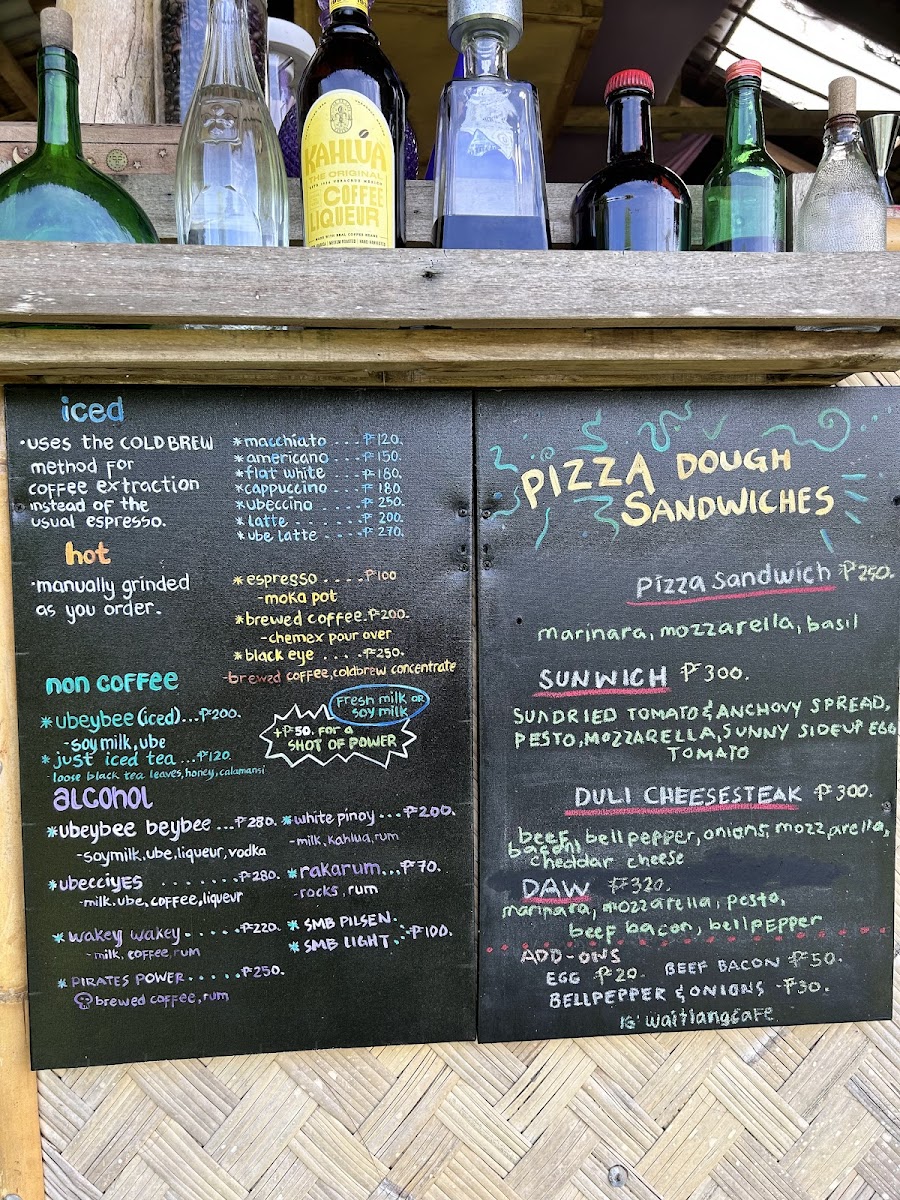 KAHLÚA
THE ORIGINAL
COFFEE
LIQUEUR
iced
•uses the COLD BREW
method for
coffee extraction
instead of the
usual espresso.
*macchiato ... ₱120.
*americano ... ₱150.
*flat white ... ₱180.
*cappuccino ... ₱180
*ubeccino ... ₱ 250.
*latte ... ₱ 200.
*ube latte ... ₱ 270.
hot
•manually grinded
as you order.
*espresso .... ₱100
-moka pot
*brewed coffee.₱200.
-chemex pour over
*black eye .... ₱250.
-brewed coffee,coldbrew concentrate
non coffee
*ubeybee (iced)...₱200.
-soymilk,ube
*just iced tea ...₱120
loose black tea leaves,honey,calamansi
Fresh milk OR
soy milk
+₱50. for a
SHOT OF POWER
alcohol
*ubeybee beybee ...₱280.
-soymilk.ube,liqueur,vodka
*ubecciyes ....... ₱280.
-milk.ube,coffee,liqueur
*wakey wakey.....₱220.
-milk, coffee,rum
*PIRATES POWER.....₱250.
brewed coffee,rum
*white pinoy...₱200.
-milk,kahlua,rum
*rakarum...₱70.
-rocks,rum
*SMB PILSEN.
*SMB LIGHT..₱100.
PIZZA DOUGH
SANDWICHES
Pizza Sandwich ₱250.
marinara, mozzarella, basil
SUNWICH ₱300.
SUNDRIED TOMATO & ANCHOVY SPREAD,
PESTO,MOZZARELLA,SUNNY SIDEUP EGG
TOMATO
DULI CHEESESTEAK ₱300.
beef, bellpepper,onions, mozzarella,
bacon,
cheddar cheese
DAW ₱320.
marinara, mozzarella, pesto,
beef bacon, bellpepper
ADD-ONS
EGG ₱20. BEEF BACON ₱50.
BELLPEPPER & ONIONS -₱30.
IG: waitlangcafe